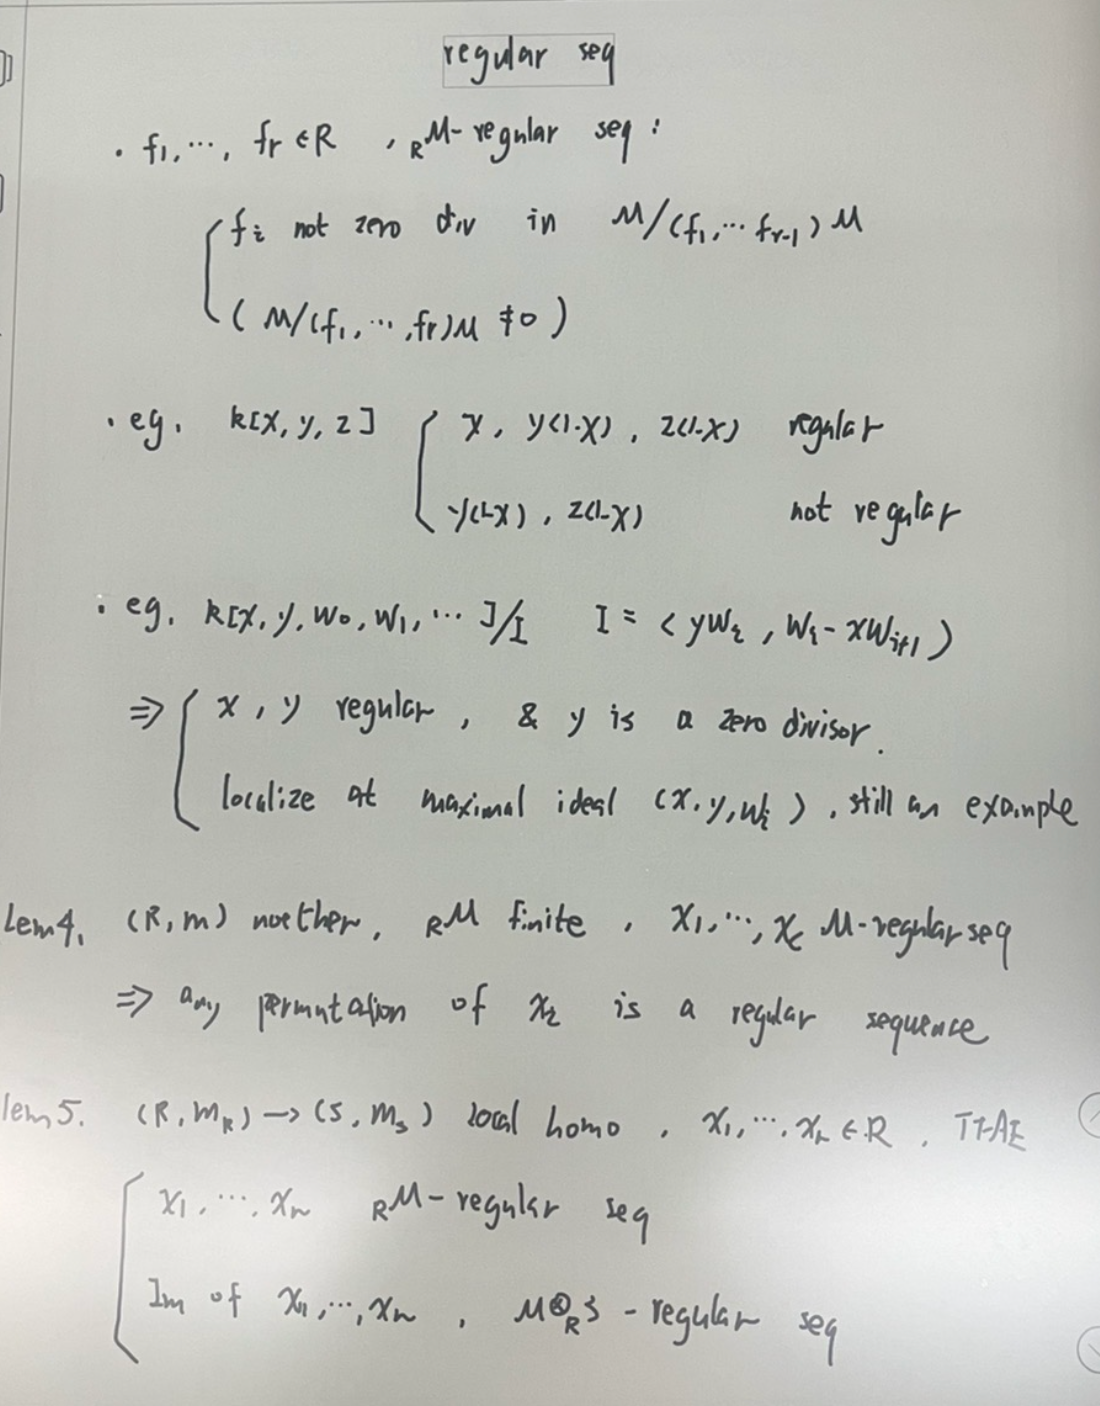 regular seq
· f₁, ⋯, fr ∈ R , _R M- regular seq :
fᵢ not zero div in M/(f₁, ⋯ f_{r-1}) M
( M/(f₁, ⋯, fr)M ≠ 0 )
· eg. k[x, y, z] x, y(1-x), z(1-x) regular
y(1-x), z(1-x) not regular
· eg. k[x, y, w₀, w₁, ⋯ ]/I I = < ywᵢ , wᵢ - xw_{i+1} )
⇒ x, y regular, & y is a zero divisor.
localize at maximal ideal (x, y, wᵢ ), still an example
Lem4. (R, m) noether, _R M finite , x₁, ⋯, x_r M-regular seq
⇒ any permutation of xᵢ is a regular sequence
lem5. (R, m_R) → (S, m_S) local homo , x₁, ⋯, x_r ∈ R , TFAE
x₁, ⋯, x_r _R M- regular seq
Im of x₁, ⋯, x_r , M⊗_R S - regular seq